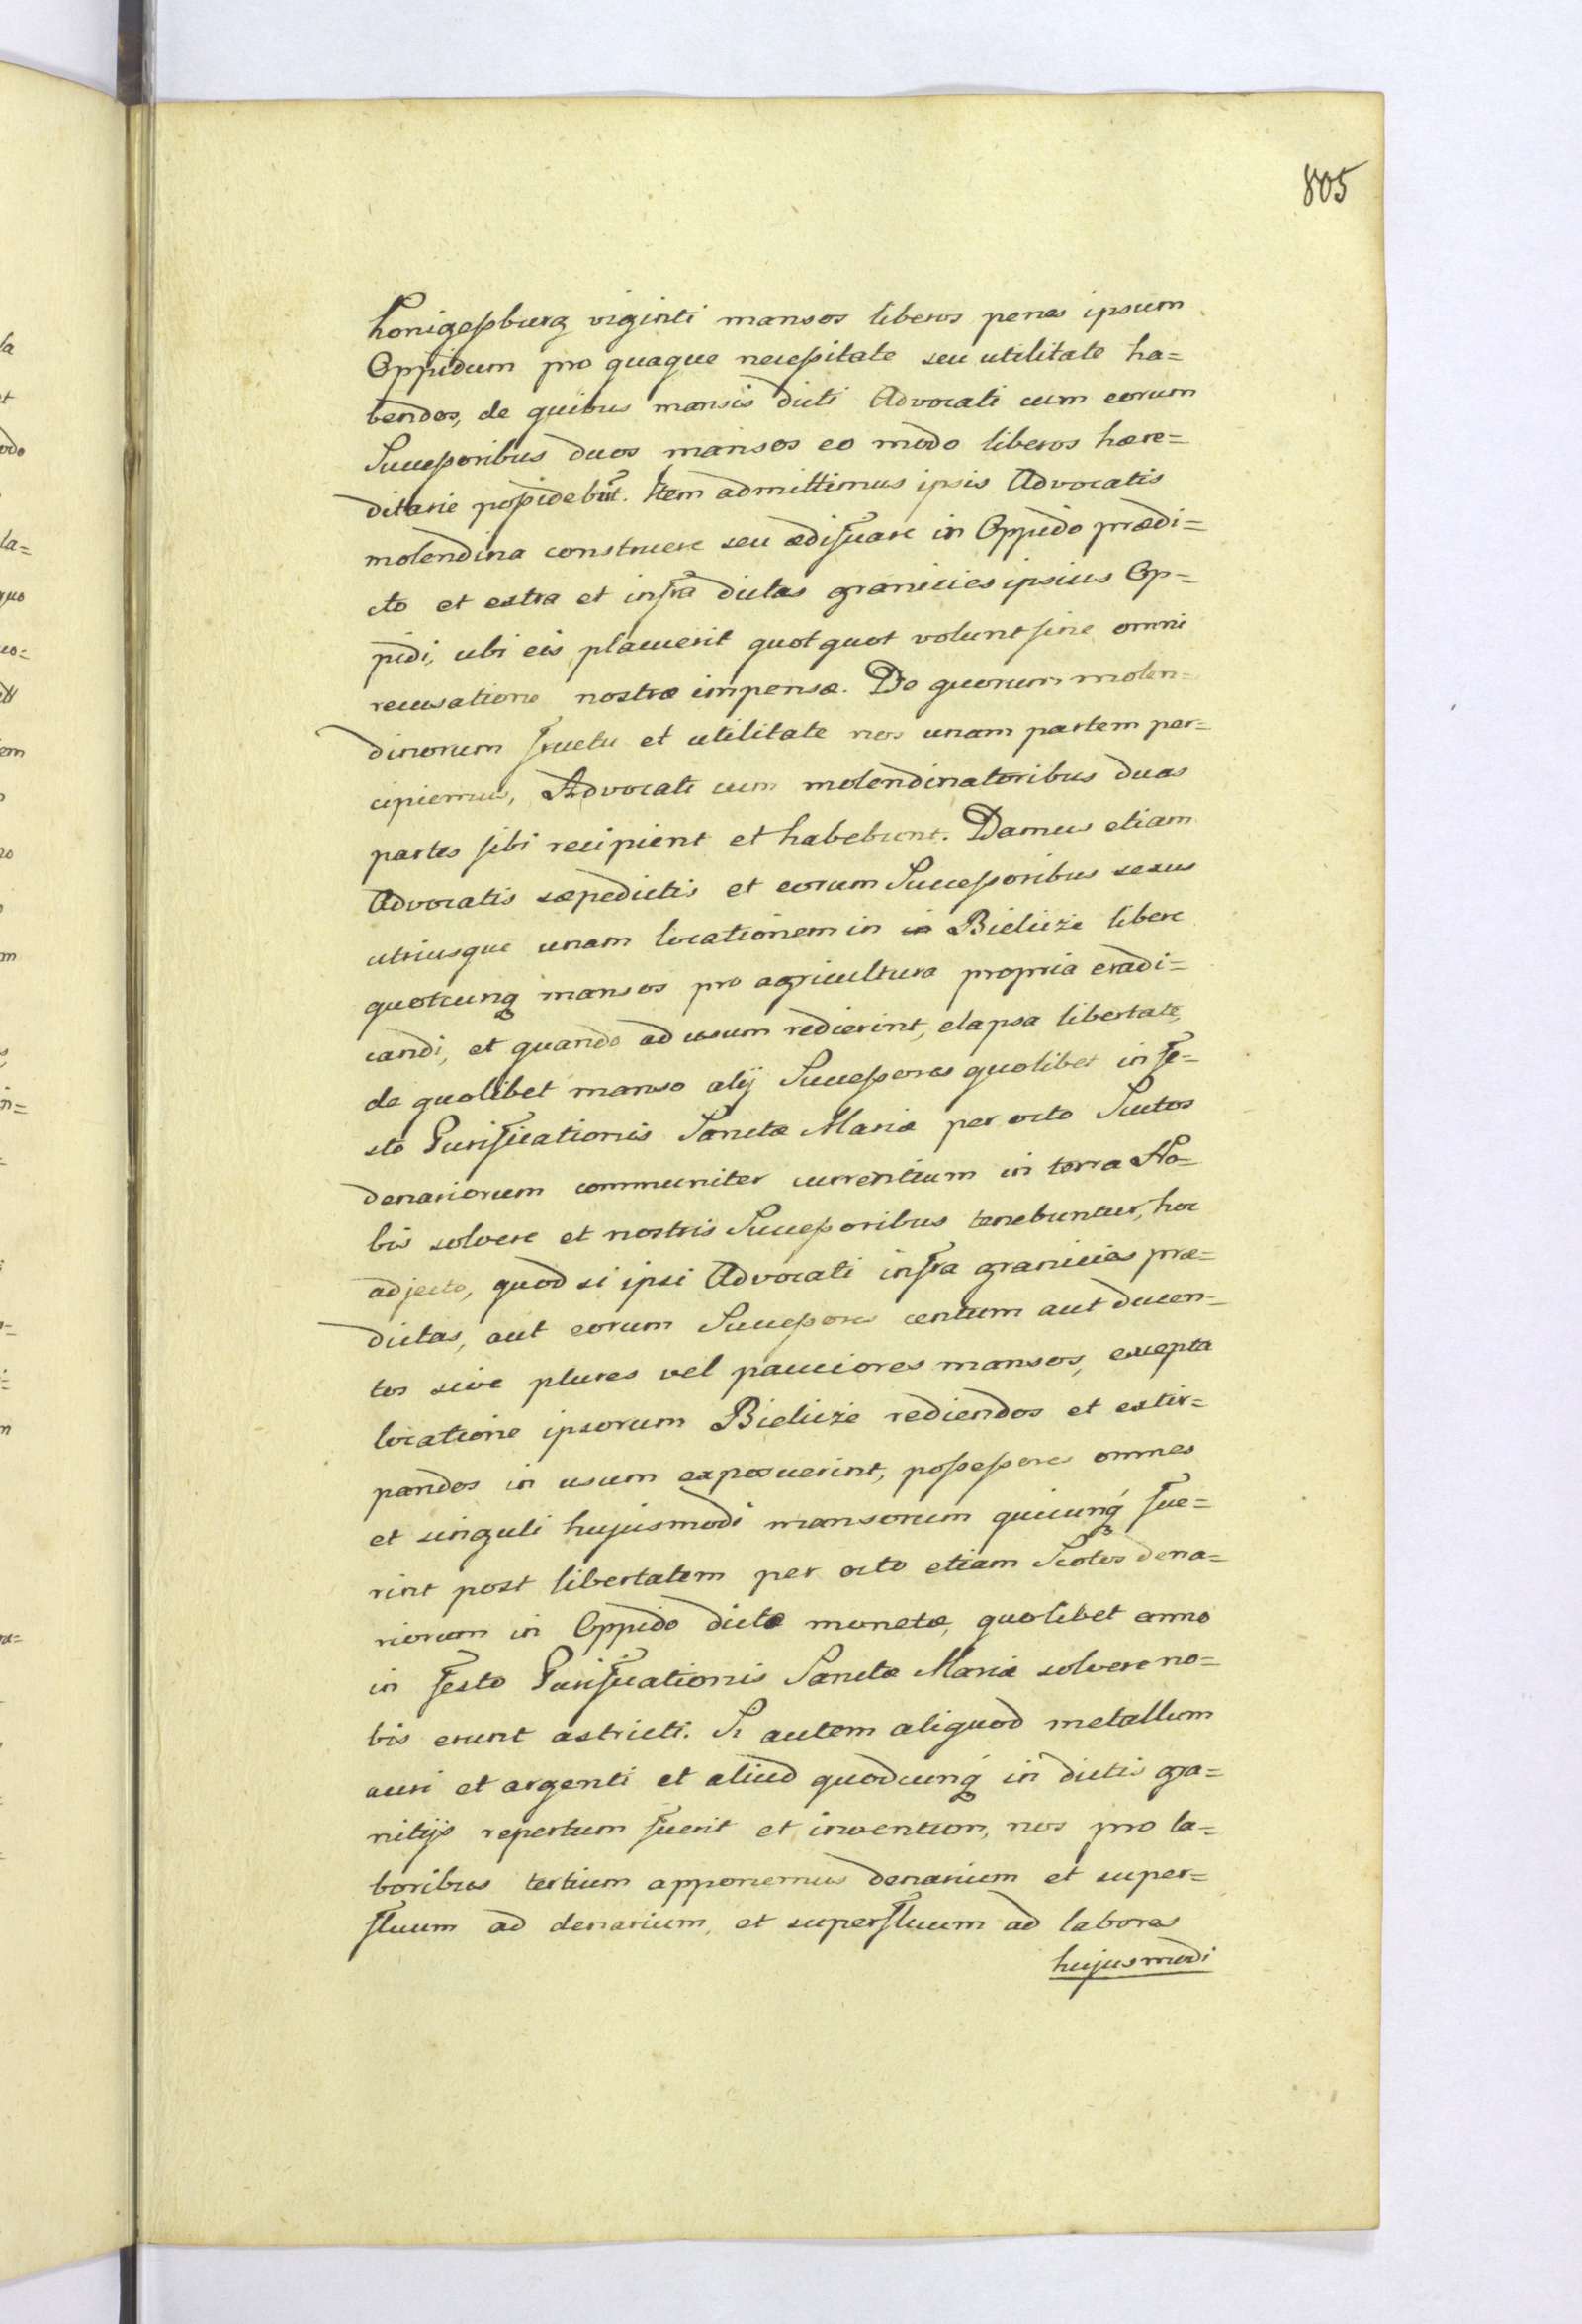 805
honigeßburg viginti mansos liberos penes ipsum
Oppidum pro quaque neceßitate seu utilitate ha=
bendos, de quibus mansis dicti Advocati cum eorum
Succeßoribus duos mansos eo modo liberos hære=
ditarie poßidebūt. Item admittimus ipsis Advocatis
molendina construere seu ædificare in Oppido prædi=
cto et extra et infra dictas granicies ipsius Op=
pidi, ubi eis placuerit quot quot volunt sine omni
recusatione nostræ impensæ. De quorum molen=
dinorum fructu et utilitate nos unam partem per=
cipiemus, Advocati cum molendinatoribus duas
partes sibi recipient et habebunt. Damus etiam
Advocatis sæpedictis et eorum Succeßoribus sexus
utriusque unam locationem in in Bielicze libere
quotcunq mansos pro agricultura propria eradi=
candi, et quando ad usum redierint, elapsa libertate,
de quolibet manso alij Succeßores quolibet in fe=
sto Purificationis Sanctæ Mariæ per octo Scutos
denariorum communiter currentium in terra No=
bis solvere et nostris Succeßoribus tenebuntur, hoc
adjecto, quod si ipsi Advocati infra granicies præ=
dictas, aut eorum Succeßores centum aut ducen=
tos sive plures vel pauciores mansos, excepta
locatione ipsorum Bielicze rediendos et extir=
pandos in usum exposuerint, poßeßores omnes
et singuli hujusmodi mansorum quicunq́ fue=
rint post libertatem per octo etiam Scotos dena=
riorum in Oppido dictæ monetæ, quolibet anno
in festo Purificationis Sanctæ Mariæ solvere no=
bis erunt astricti. Si autem aliquod metallum
auri et argenti et aliud quodcunq́ in dictis gra=
nitijs repertum fuerit et inventum, nos pro la=
boribus tertium apponemus denarium et super=
fluum ad denarium, et superfluum ad labores
hujusmodi